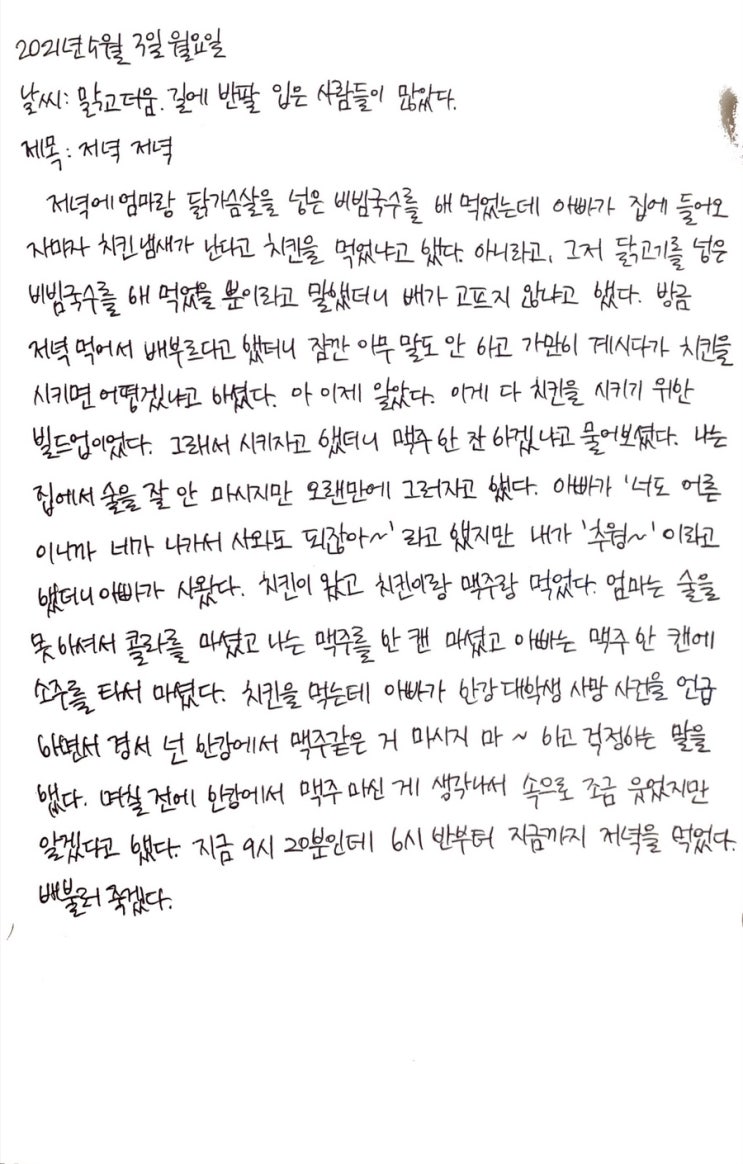 2021년 5월 3일 월요일
날씨: 맑고 더움. 길에 반팔 입은 사람들이 많았다.
제목: 저녁 저녁
저녁에 엄마랑 닭가슴살을 넣은 비빔국수를 해 먹었는데 아빠가 집에 들어오
자마자 치킨 냄새가 난다고 치킨을 먹었냐고 했다. 아니라고, 그저 닭고기를 넣은
비빔국수를 해 먹었을 뿐이라고 말했더니 배가 고프지 않냐고 했다. 방금
저녁 먹어서 배부르다고 했더니 잠깐 아무 말도 안 하고 가만히 계시다가 치킨을
시키면 어떻겠냐고 하셨다. 아 이제 알았다. 이게 다 치킨을 시키기 위한
빌드업이었다. 그래서 시키자고 했더니 맥주 한 잔 하겠냐고 물어보셨다. 나는
집에서 술을 잘 안 마시지만 오랜만에 그러자고 했다. 아빠가 '너도 어른
이니까 네가 나가서 사와도 되잖아~' 라고 했지만 내가 '추웡~' 이라고
했더니 아빠가 사왔다. 치킨이 왔고 치킨이랑 맥주랑 먹었다. 엄마는 술을
못 하셔서 콜라를 마셨고 나는 맥주를 한 캔 마셨고 아빠는 맥주 한 캔에
소주를 타서 마셨다. 치킨을 먹는데 아빠가 한강 대학생 사망 사건을 언급
하면서 경서 넌 한강에서 맥주같은 거 마시지 마 ~ 하고 걱정하는 말을
했다. 며칠 전에 한강에서 맥주 마신 게 생각나서 속으로 조금 웃었지만
알겠다고 했다. 지금 9시 20분인데 6시 반부터 지금까지 저녁을 먹었다.
배불러 죽겠다.